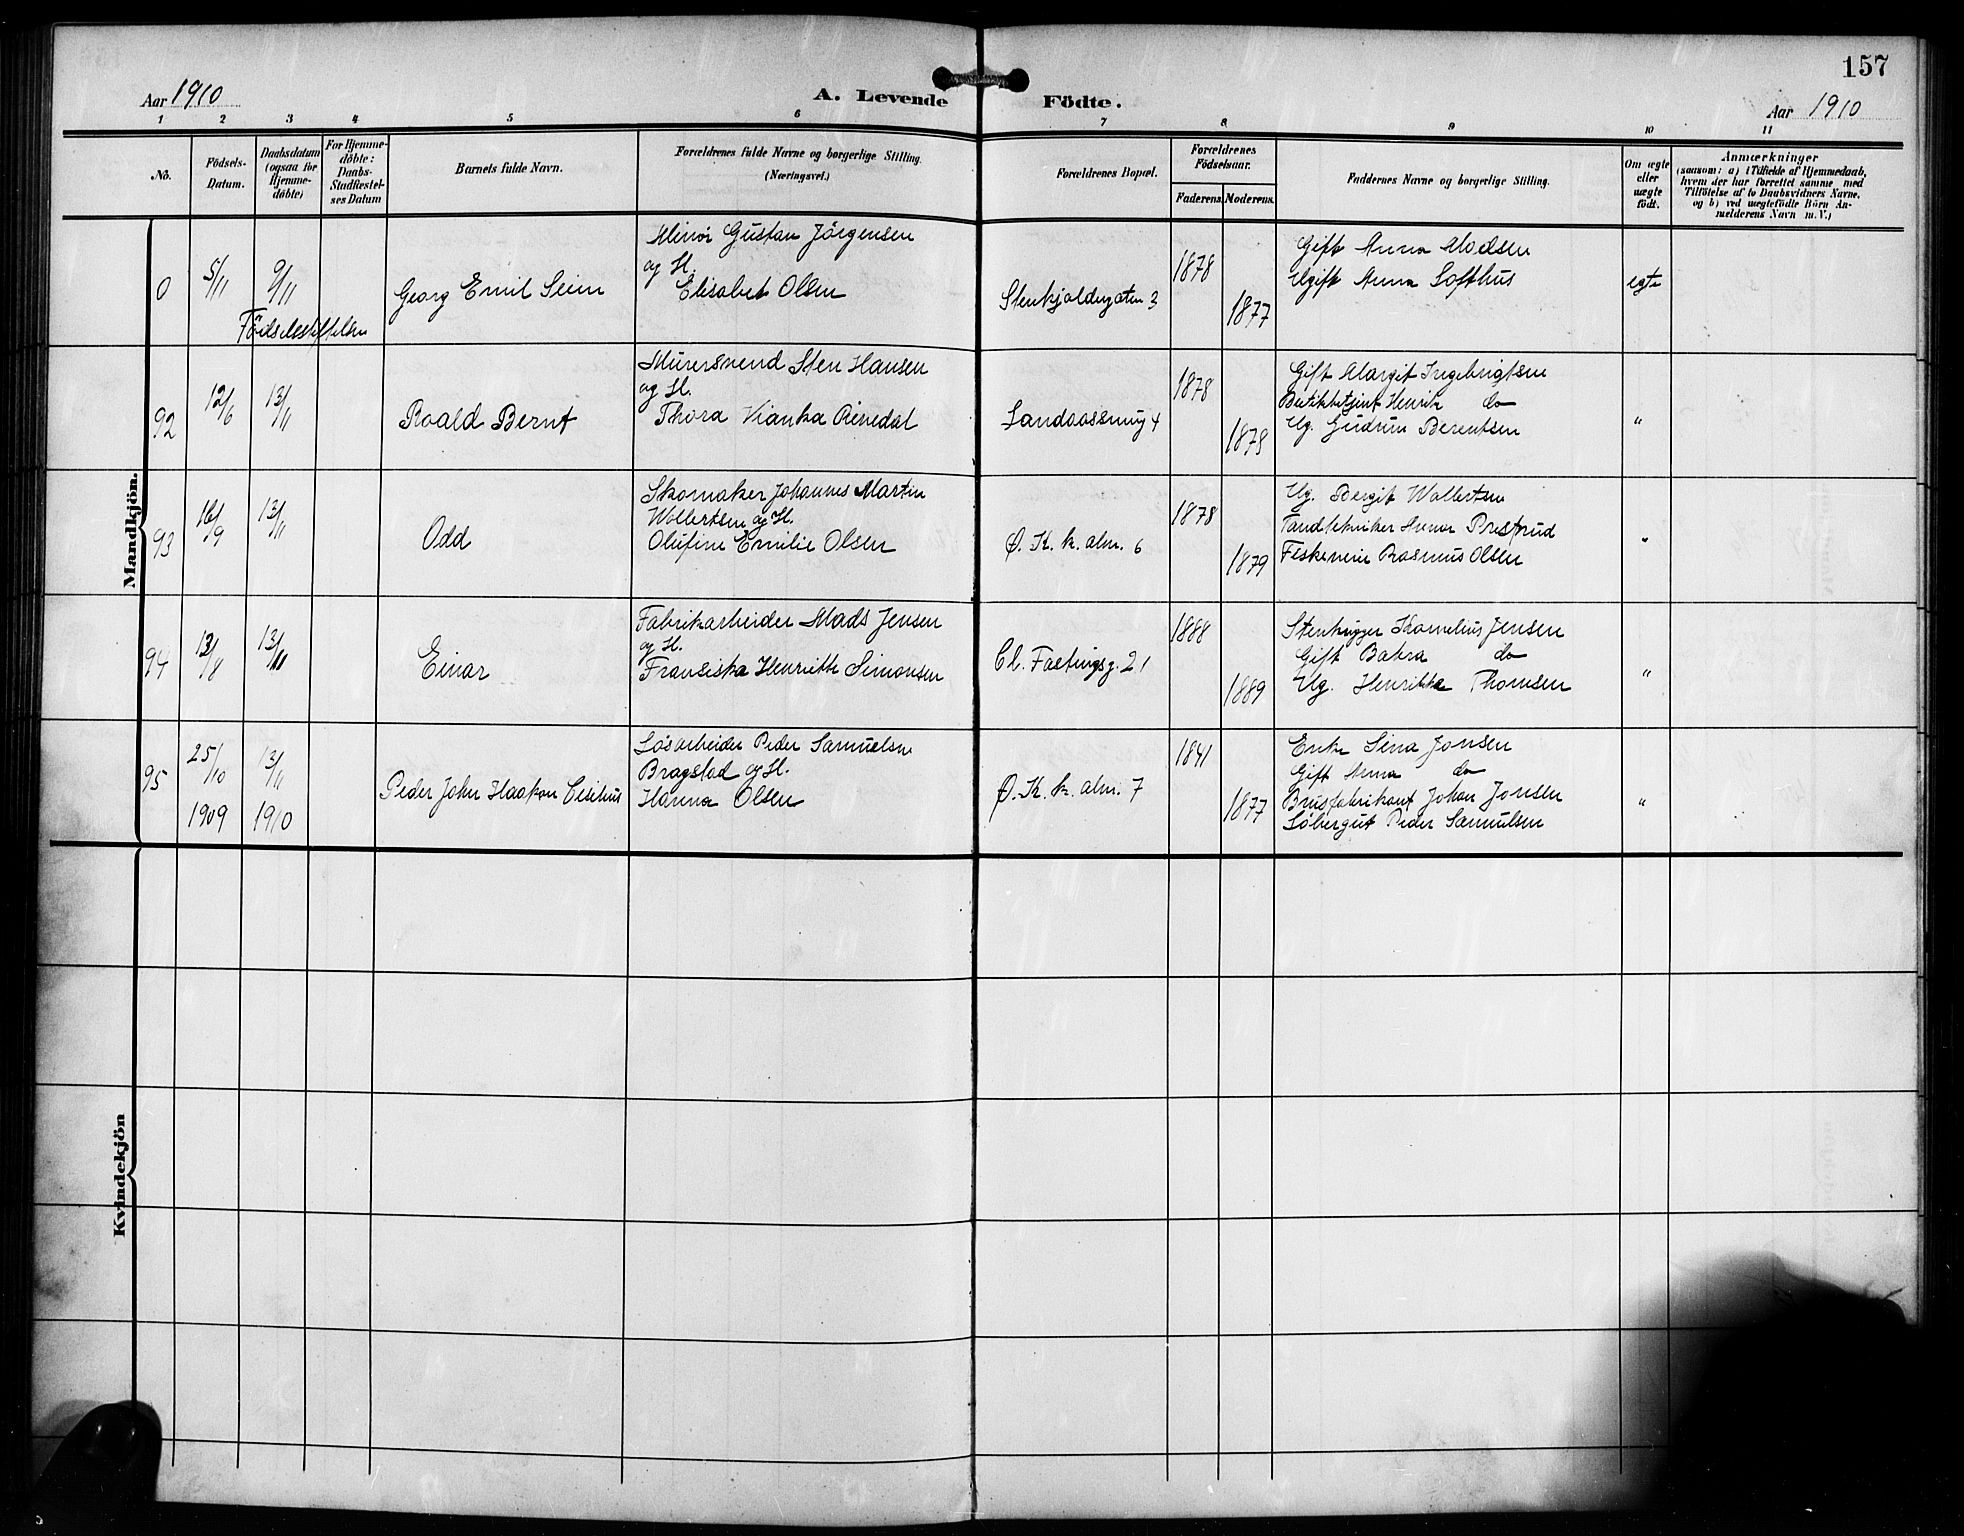 157
Aar 1910
A. Levende Födte.
Aar 1910
1 2 3 4 5 6 7 8 9 10 11
No.
Födsels-
Datum.
Daabsdatum
(ogsaa for
Hjemme-
döbte)
For Hjemme-
döbte:
Daabs-
Stadfæstel-
ses Datum
Barnets fulde Navn.
Forældrenes fulde Navne og borgerlige Stilling.
(Næringsvei.)
Forældrenes Bopæl.
Forældrenes
Födselsaar.
Faderens. Moderens.
Faddernes Navne og borgerlige Stilling.
Om ægte
eller
uægte
født.
Anmærkninger
(saasom: a) i Tilfælde af Hjemmedaab,
hvem der har forrettet samme med
Tilföielse af to Daabsvidners Navne,
og b) ved uægtefödte Börn An-
melderens Navn m. V.)
Mandkjön.
0 5/11 9/11
Födselsstiftelsen
Georg Emil Seim
Gustav Jörgensen
og H.
Elisabet Olsen
3
1878
1877
Gift Anna Madsen
Ugift Anna Lofthus
egte
92 12/6 13/11
Roald Bernt
Murersvend Sten Hansen
og H.
Thora
Landaassmug 4
1878
1878
Gift Margit Ingebrigtsen
Henrik do
Ug. Gudrun Berentsen
"
93 16/9 13/11
Odd
Skomaker Johannes Martin
Wollertsen og H.
Olufine Emilie Olsen
Ø. K. k. alm. 6
1878
1879
Ug. Bergit Wollertsen
Tandtekniker Prestrud
Rasmus Olsen
"
94 13/8 13/11
Einar
Fabrikarbeider Mads Jensen
og H.
Fransiska Henriette Simonsen
Cl. Fastingsg. 21
1888
1889
Stenhugger Kornelius Jensen
Gift do
Ug. Henrikka Thomsen
"
95 25/10 13/11
1909 1910
Peder John Haakon
Løsarbeider Peder Samuelsen
Bragstad og H.
Hanna Olsen
Ø. K. k. alm. 7
1841
1877
Enke Sina Jonsen
Gift Anna do
Brusfabrikant Johan Jonsen
Løbergut Peder Samuelsen
"
Kvindekjön